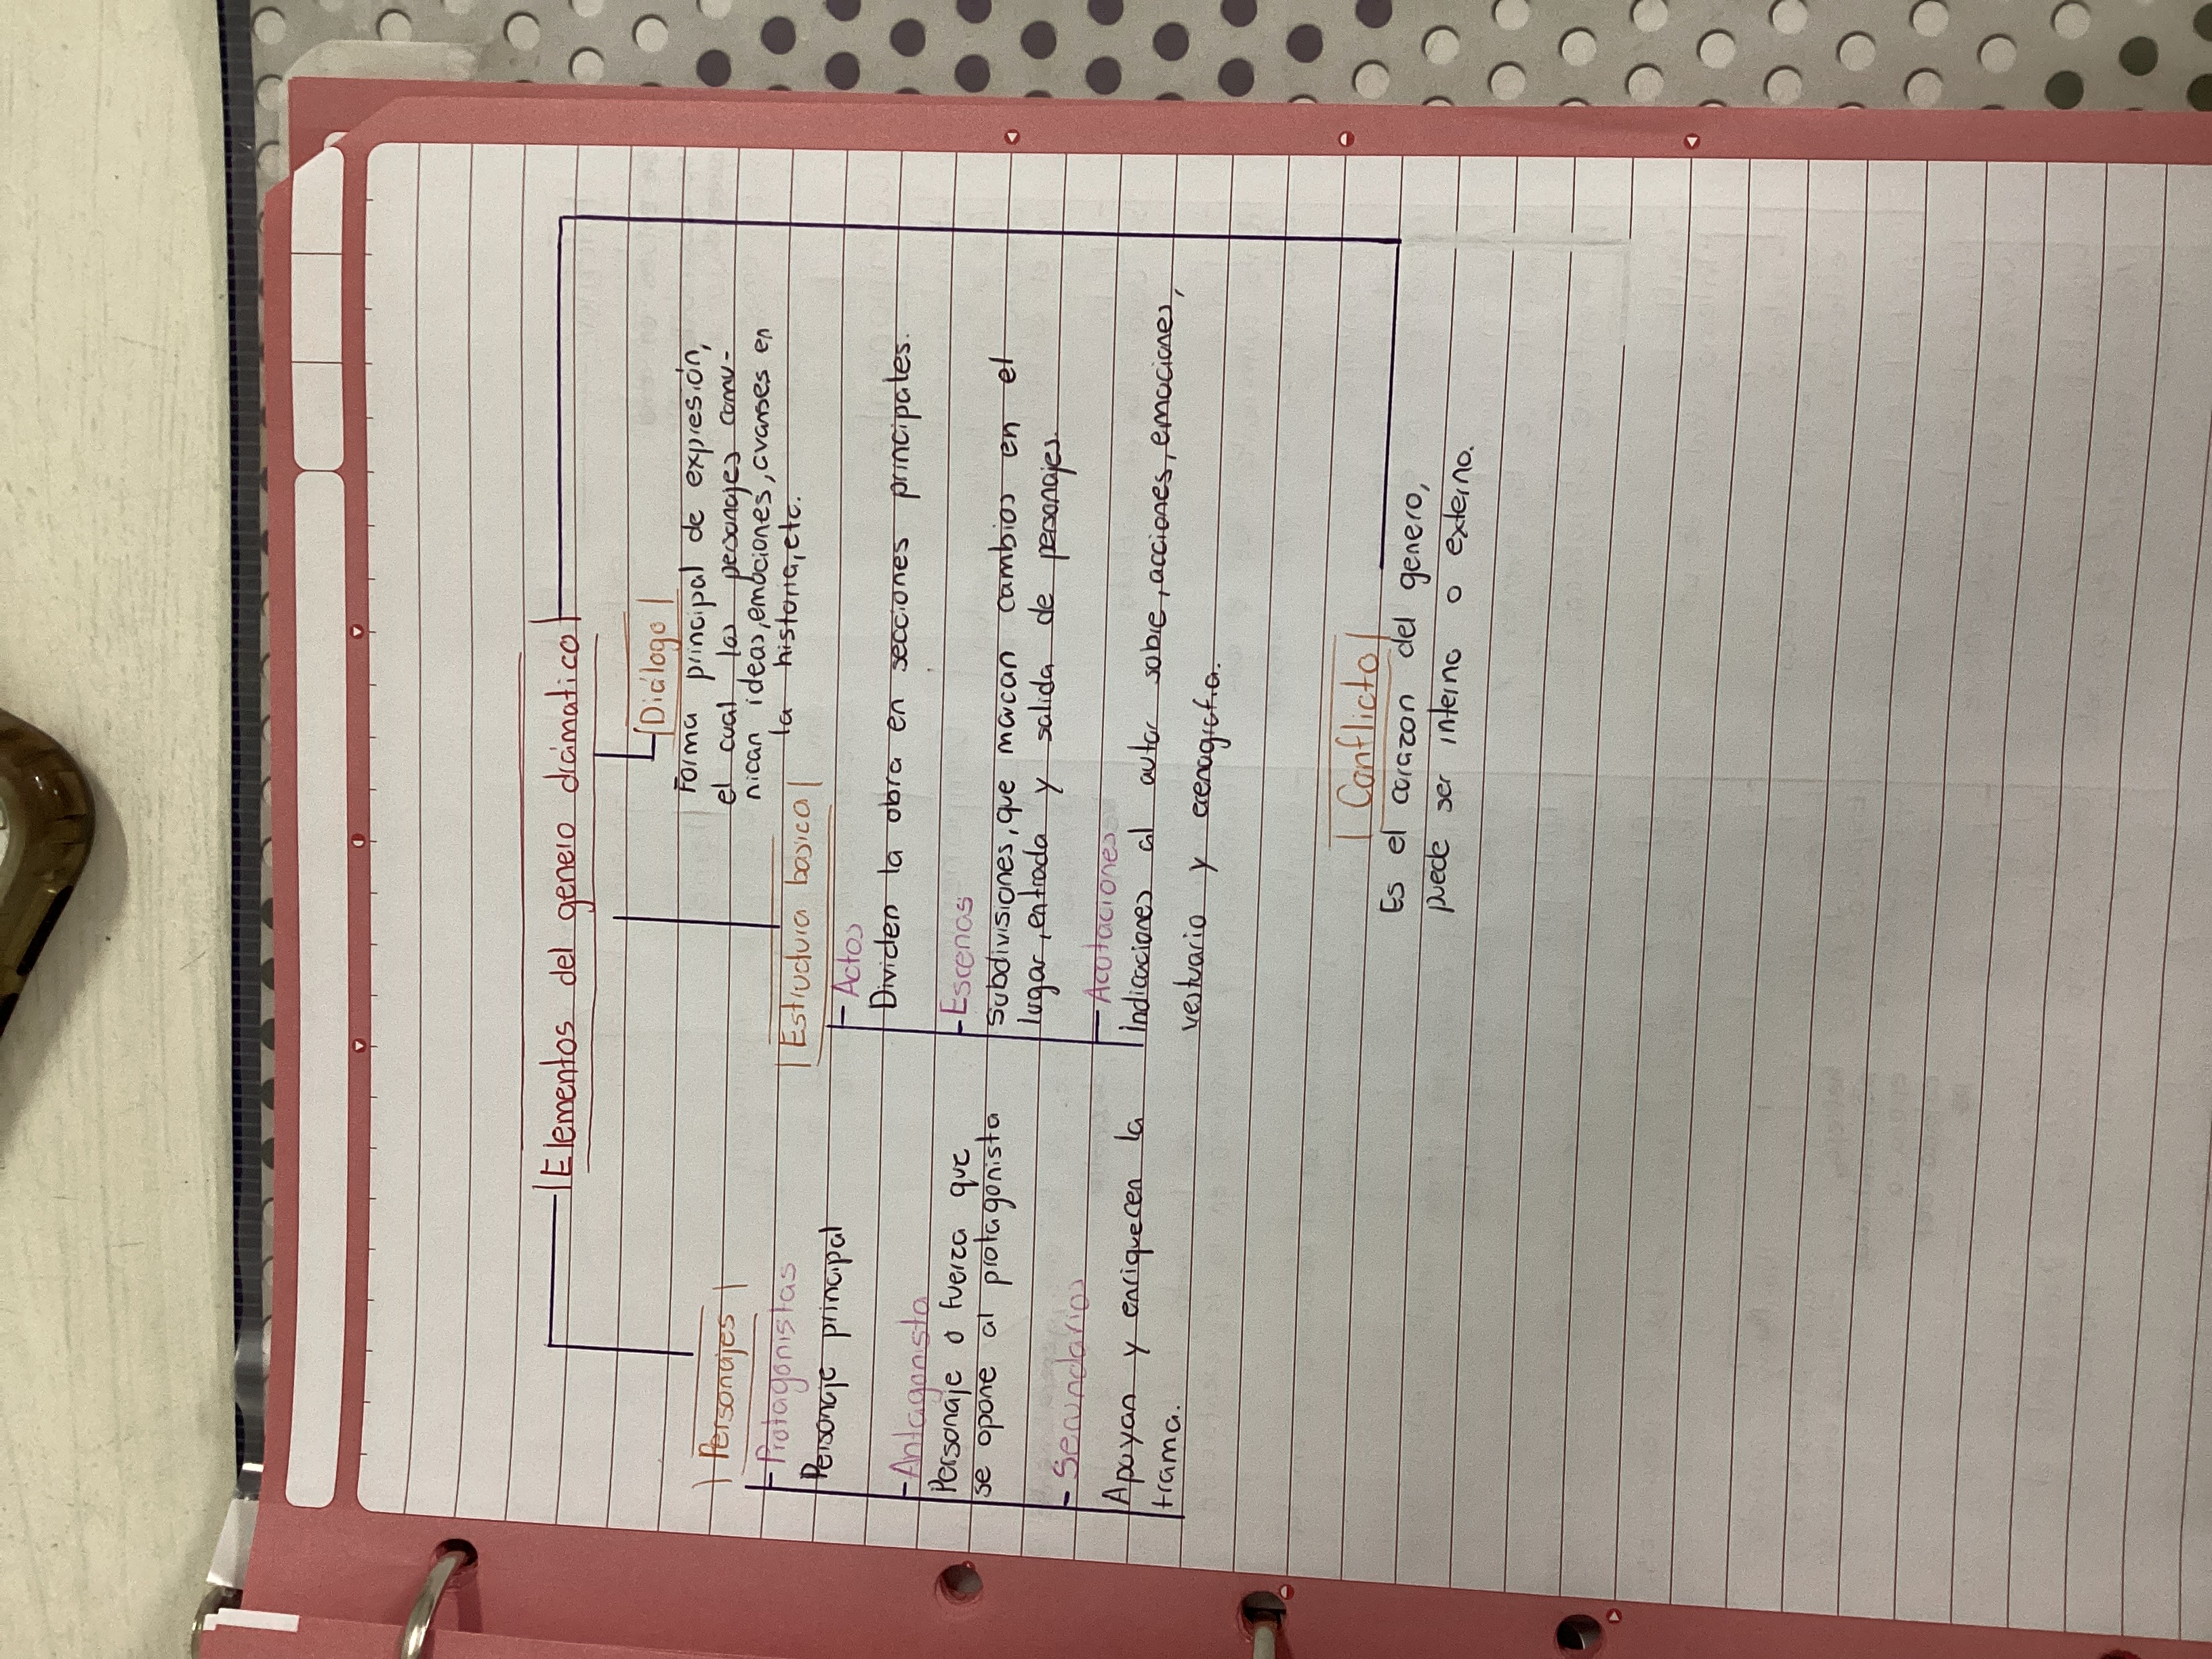 Elementos del genero drámatico
Diálogo
Forma principal de expresión,
el cual los personajes comu-
nican ideas, emociones, avanses en
la historia, etc.
Personajes
- Protagonistas
Personaje principal
- Antagonista
Personaje o fuerza que
se opone al protagonista
- Secundarios
Apoyan y enriquecen la
trama.
Estructura basica
- Actos
Dividen la obra en secciones principales.
- Escenas
Subdivisiones, que marcan cambios en el
lugar, entrada y salida de personajes.
- Acotaciones
Indicaciones al autor sobre, acciones, emociones,
vestuario y
Conflicto
Es el corazon del genero,
puede ser interno o externo.